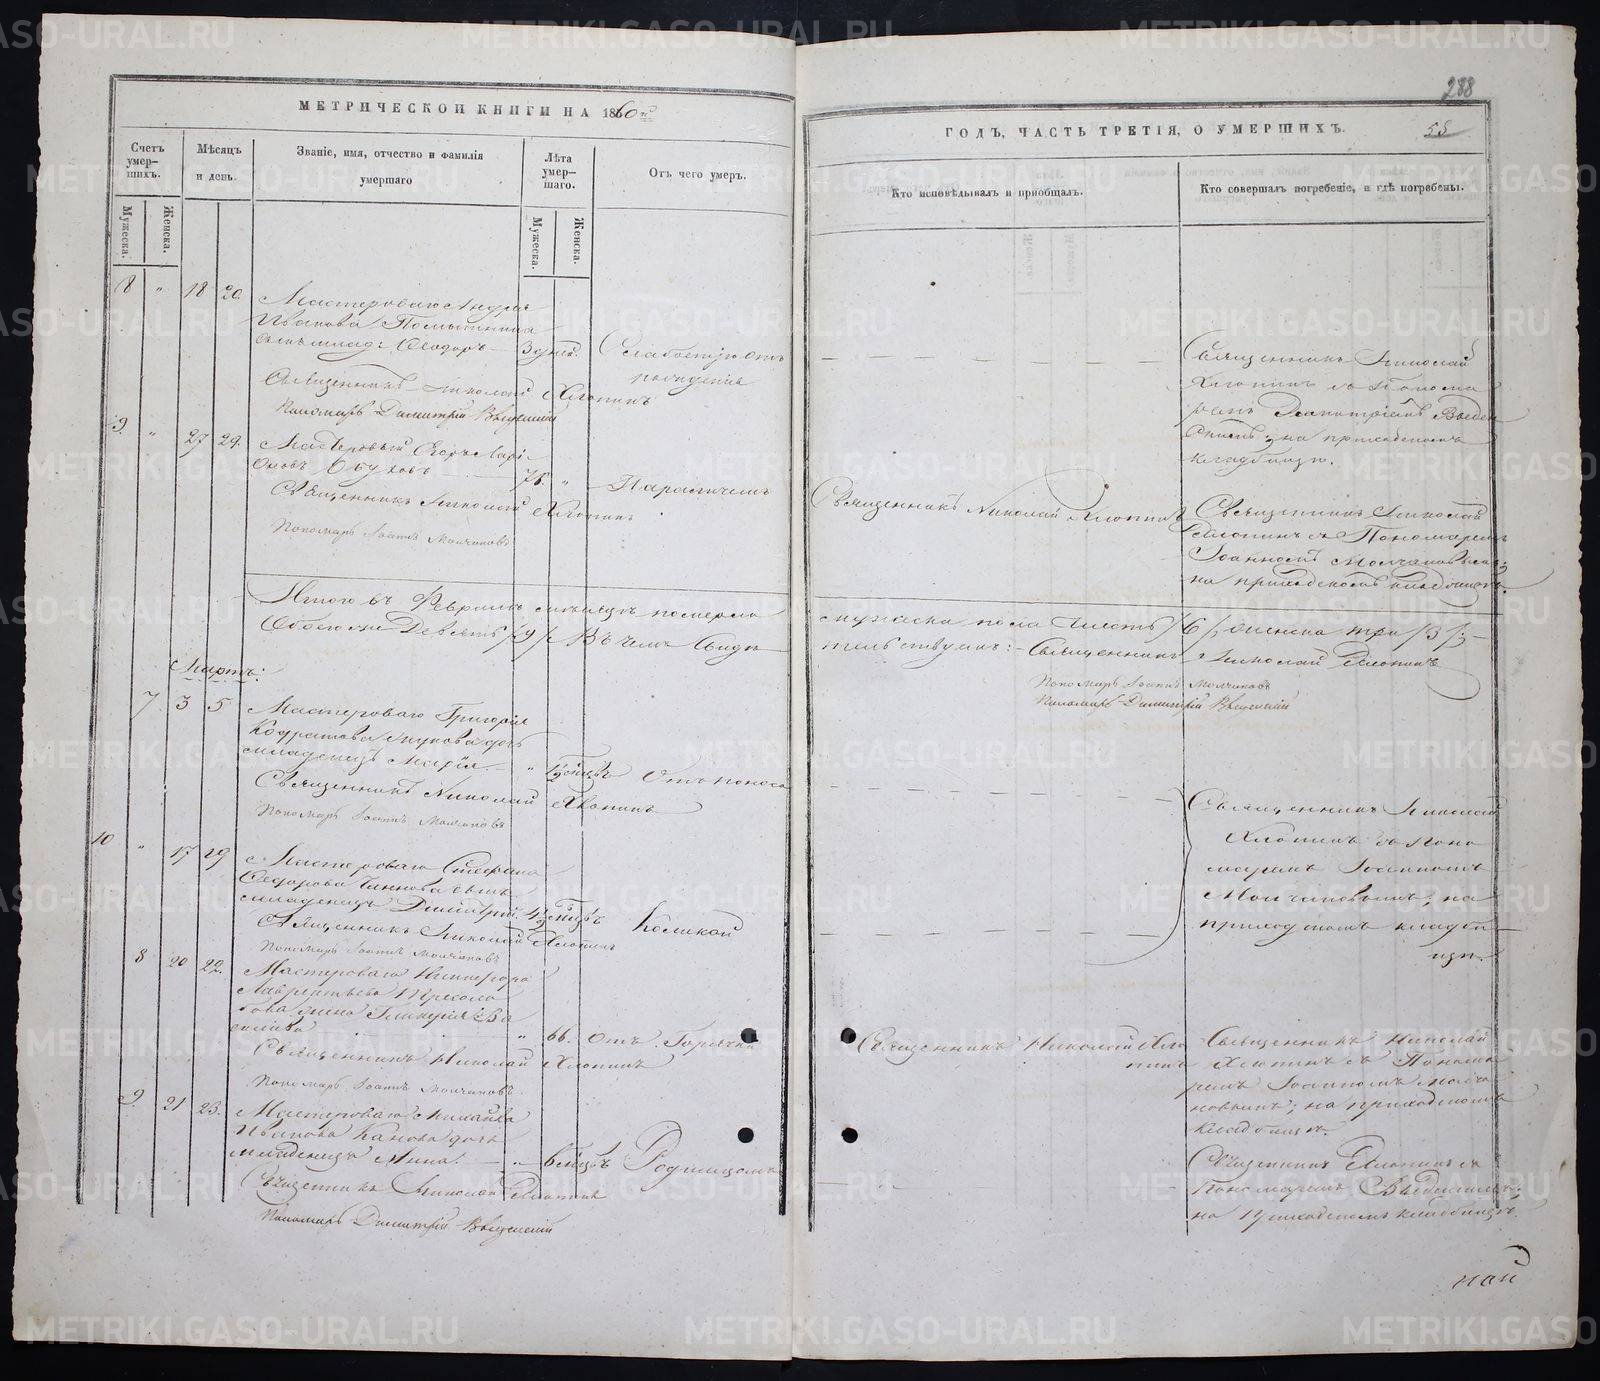 МЕТРИЧЕСКОЙ КНИГИ НА 1860й
Счетъ умер-шихъ.
Мужеска.
Женска.
Мѣсяцъ и день.
Званіе, имя, отчество и фамилія умершаго
Лѣта умер-шаго.
Мужеска.
Женска.
Отъ чего умеръ.
8 " 18 20.
Мастероваго Андрея
Иванова
сынъ млад: Ѳеодоръ — 3 дней. Слабостію отъ
рожденія
Священникъ Николай Хлопинъ
Пономарь Димитрій Введенскій
9. " 27 29.
Мастеровый Егоръ Лари-
оновъ Обуховъ 75. " Параличемъ
Священникъ Николай Хлопинъ
Пономарь Іоаннъ Молчановъ
Итого въ Февралѣ мѣсяцѣ померло
Обоего пола Девять /9/ Въ чемъ свидѣ
Мартъ:
7 3 5
Мастероваго Григорія
дочь
младенецъ Марія. — " Отъ поноса
Священникъ Николай Хлопинъ
Пономарь Іоаннъ Молчановъ
10 " 17 19
Мастероваго Стефана
Ѳедорова сынъ
младенецъ Димитрій Коликой
Священникъ Николай Хлопинъ
Пономарь Іоаннъ Молчановъ
8 20 22.
Мастероваго
Лаврентьева
жена Гликерія Ва
сильева " 66. Отъ Горячки
Священникъ Николай Хлопинъ
Пономарь Іоаннъ Молчановъ.
9. 21 23.
Мастероваго Михаила
Иванова Канова дочь
младенецъ Анна. — " 6 мѣсцъ Родимцемъ
Священникъ Николай Хлопинъ
Пономарь Димитрій Введенскій
288
ГОДЪ, ЧАСТЬ ТРЕТІЯ, О УМЕРШИХЪ.
58
Кто исповѣдывалъ и пріобщалъ.
Кто совершалъ погребеніе, и гдѣ погребены.
Священникъ Николай
Хлопинъ съ Понома
ремъ Димитріемъ Введен
скимъ; на приходскомъ
кладбищѣ.
Священникъ Николай Хлопинъ
Священникъ Николай
Хлопинъ съ Пономаремъ
Іоанномъ Молчановымъ;
на приходскомъ кладбищѣ.
мужеска пола Шесть /6/, женска три /3/; —
тельствуемъ: — Священникъ Николай Хлопинъ
Пономарь Іоаннъ Молчановъ
Пономарь Димитрій Введенскій
Священникъ Николай
Хлопинъ съ Поно
маремъ Іоанномъ
Молчановымъ; на
приходскомъ кладби—
щѣ.
Священникъ Николай Хло
пинъ
Священникъ Николай
Хлопинъ съ Понома
ремъ Іоанномъ Молча
новымъ; на приходскомъ
кладбищѣ.
Священникъ Хлопинъ съ
Пономаремъ Введенскимъ;
на приходскомъ кладбищѣ.
METRIKI.GASO-URAL.RU